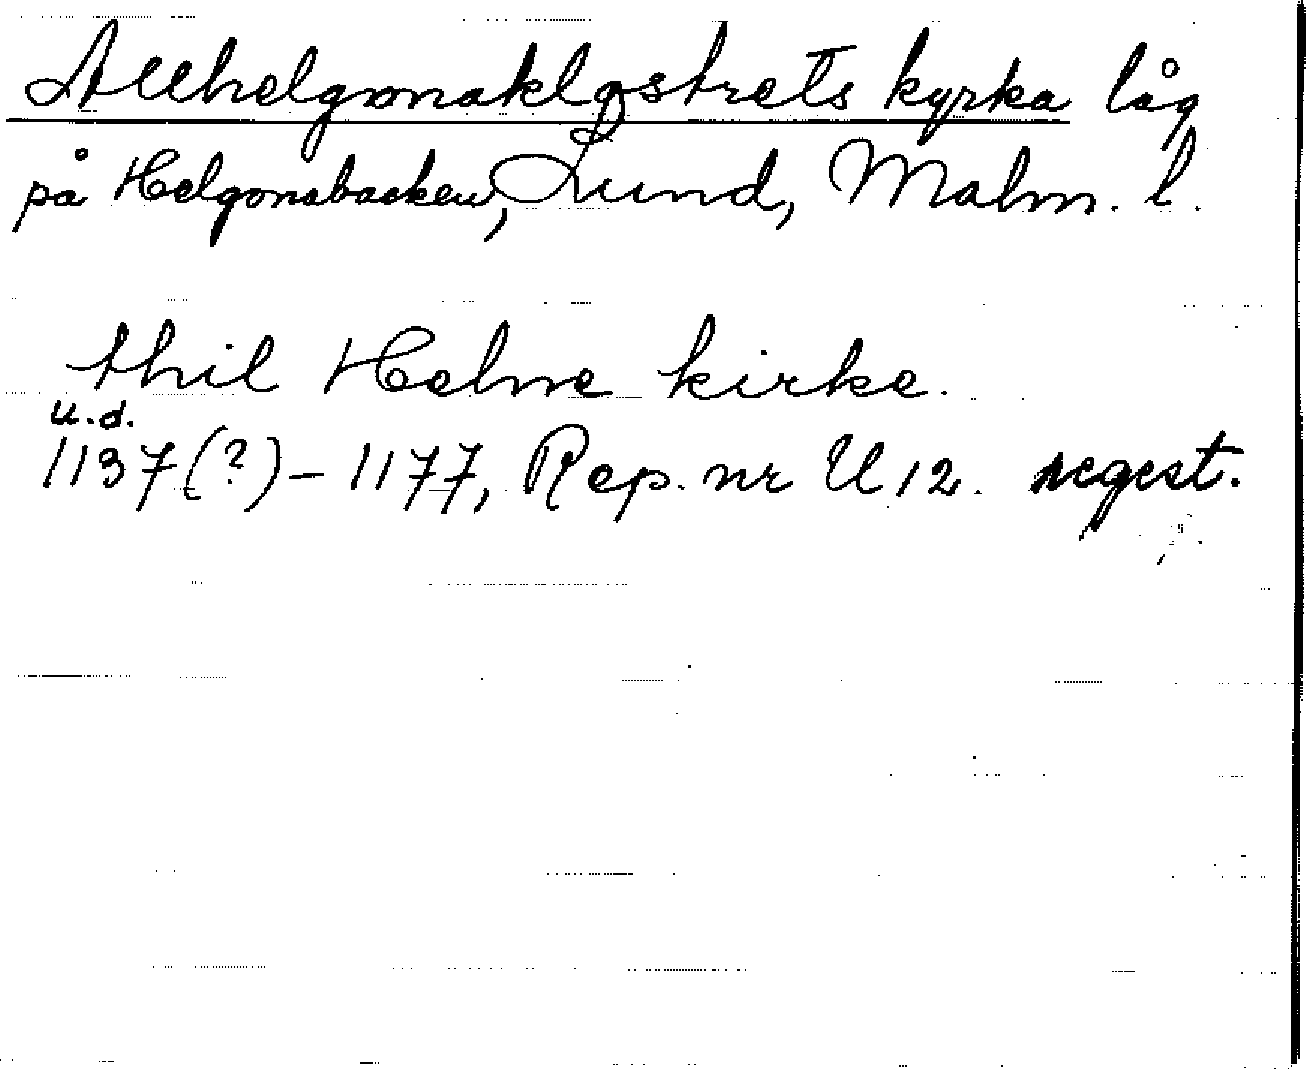 Allhelgonaklostrets kyrka låg
på Helgonabacken, Lund, Malm. l.
thil Helne kirke.
u.d.
1137(?) - 1177, Rep. nr U 12. regest.